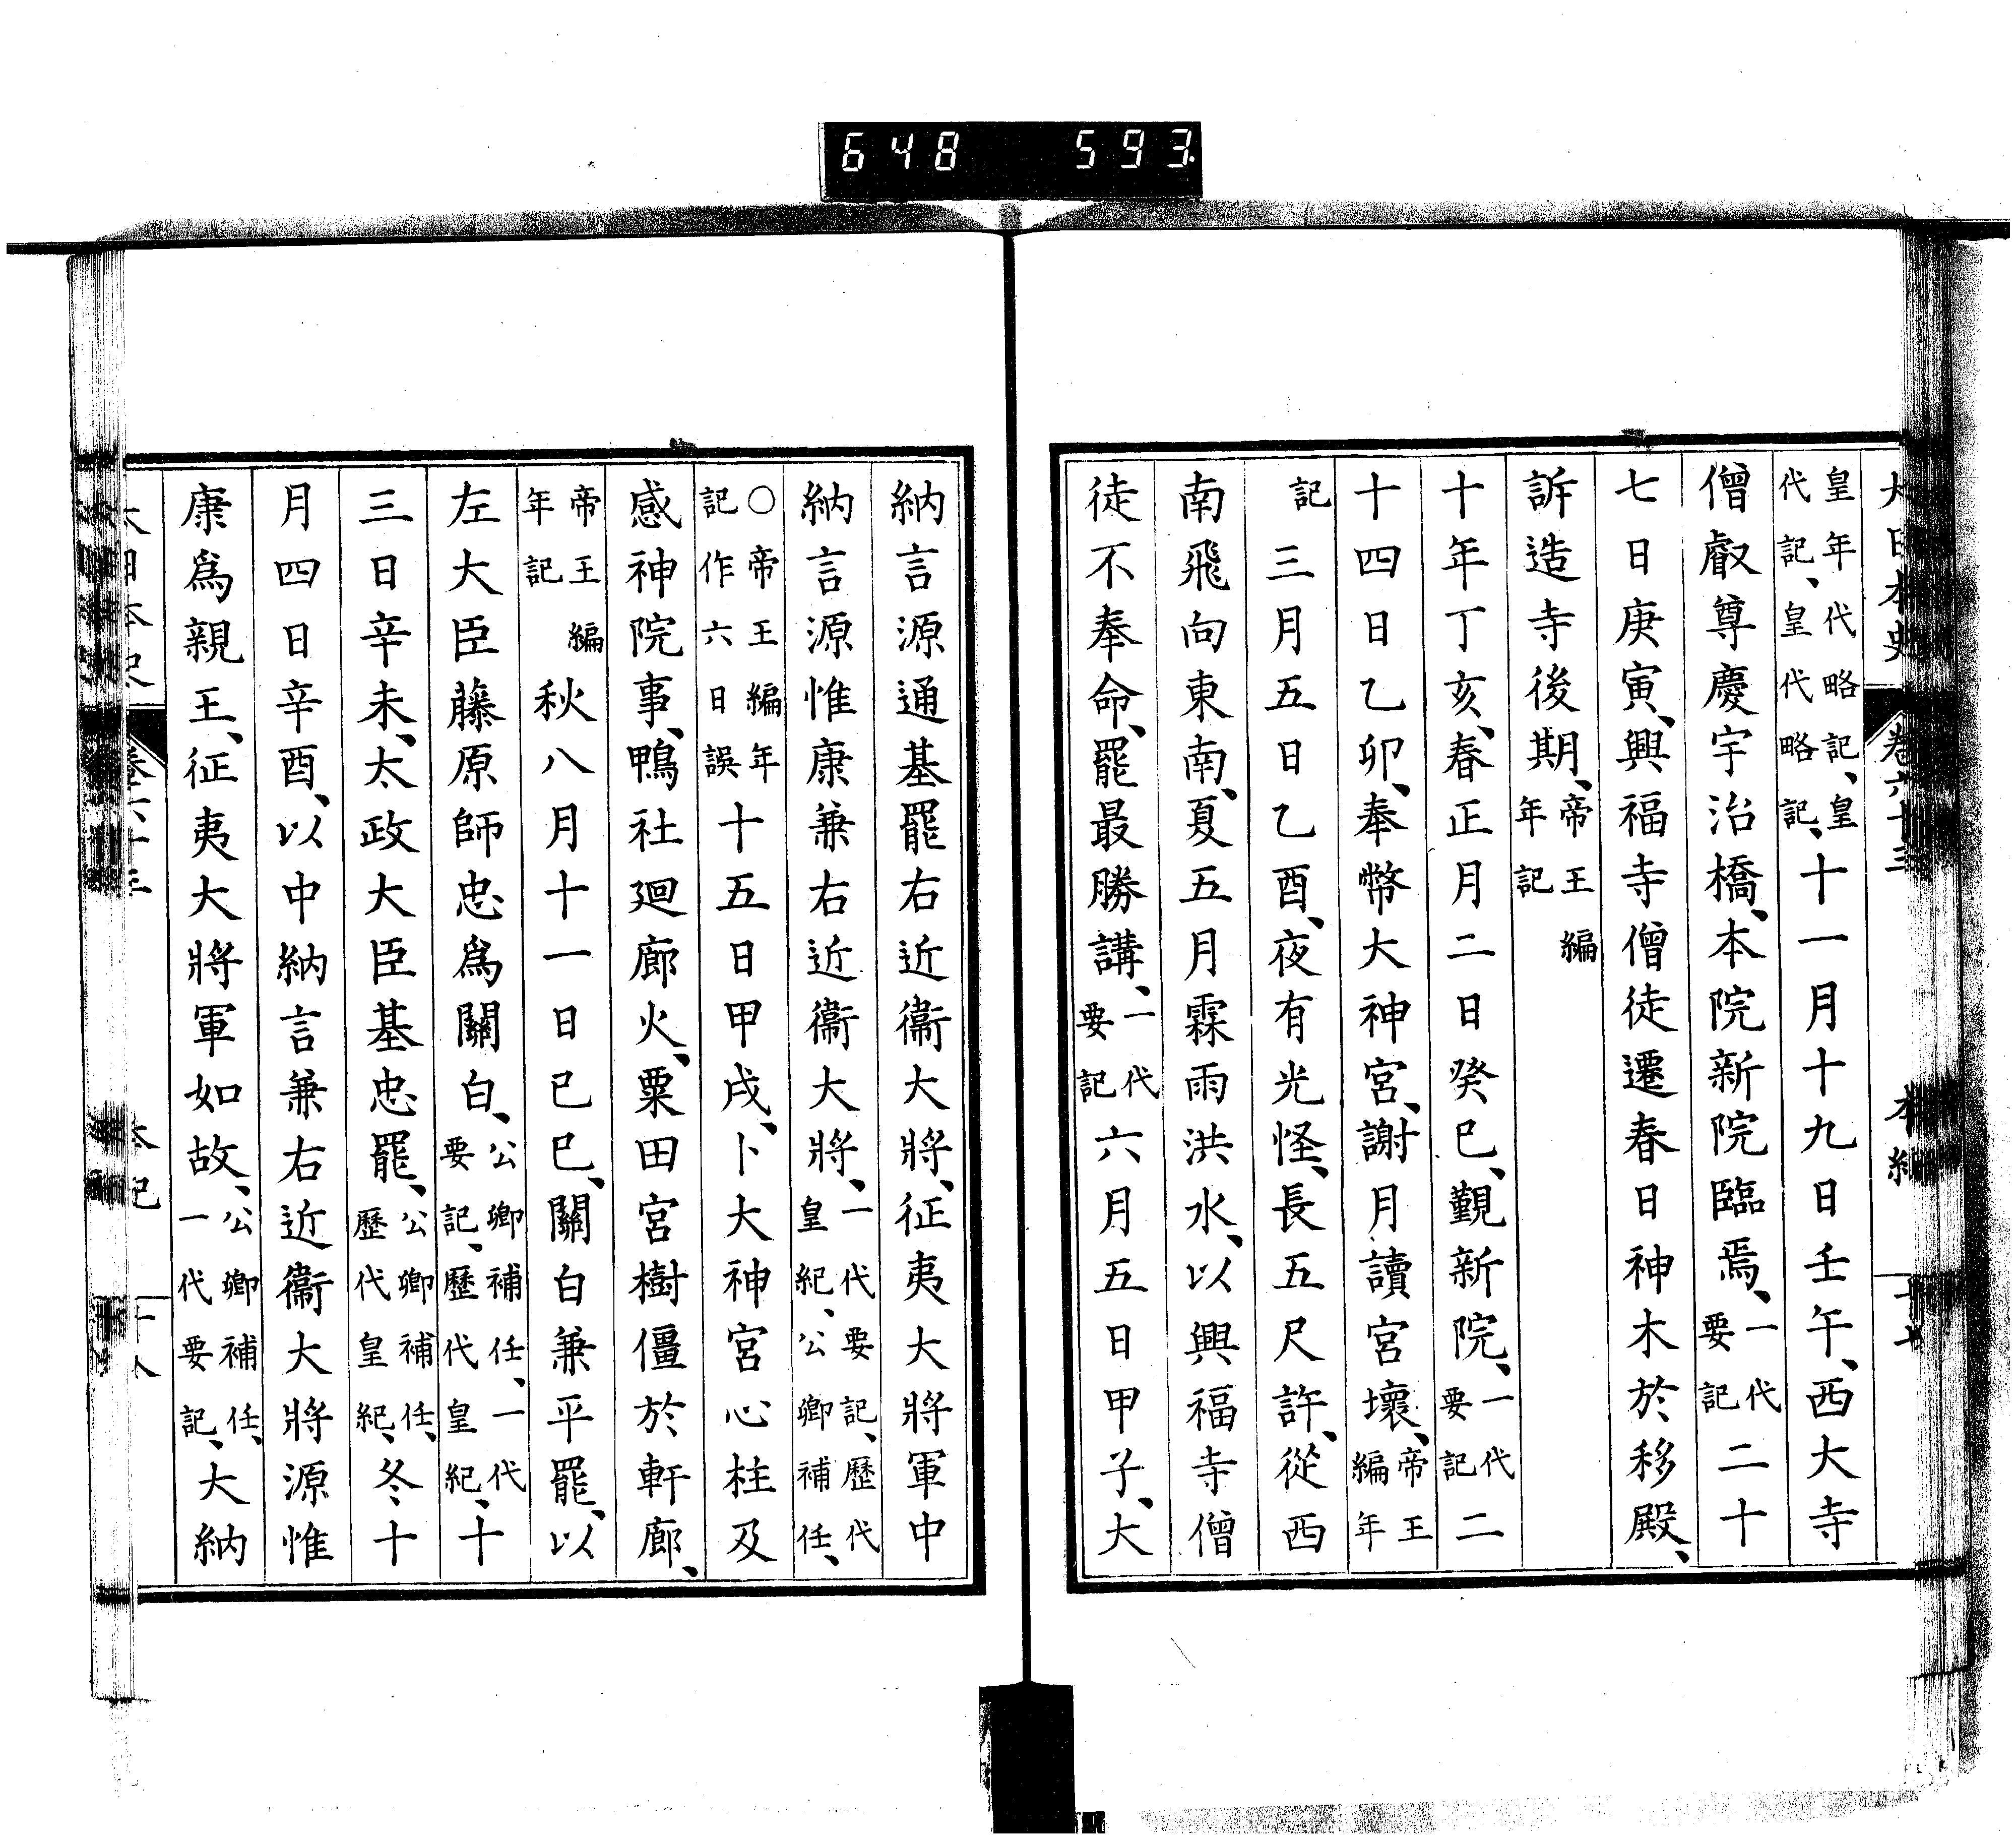 648 593
大日本史 卷六十三 本紀 十七
皇年代略記、皇代記、皇代略記、十一月十九日壬午、西大寺
僧叡尊慶宇治橋、本院新院臨焉、一代要記二十
七日庚寅、興福寺僧徒遷春日神木於移殿、
訴造寺後期、帝王編年記
十年丁亥、春正月二日癸巳、覲新院、一代要記二
十四日乙卯、奉幣大神宮、謝月讀宮壞、帝王編年
記三月五日乙酉、夜有光怪、長五尺許、從西
南飛向東南、夏五月霖雨洪水、以興福寺僧
徒不奉命、罷最勝講、一代要記六月五日甲子、大
納言源通基罷右近衞大將、征夷大將軍中
納言源惟康兼右近衞大將、一代要記、歷代皇紀、公卿補任、
○帝王編年記作六日誤十五日甲戌、卜大神宮心柱及
感神院事、鴨社廻廊火、粟田宮樹僵於軒廊、
帝王編年記秋八月十一日己巳、關白兼平罷、以
左大臣藤原師忠爲關白、公卿補任、一代要記、歷代皇紀、十
三日辛未、太政大臣基忠罷、公卿補任、歷代皇紀、冬十
月四日辛酉、以中納言兼右近衞大將源惟
康爲親王、征夷大將軍如故、公卿補任、一代要記、大納
大日本史 卷六十三 本紀 十八